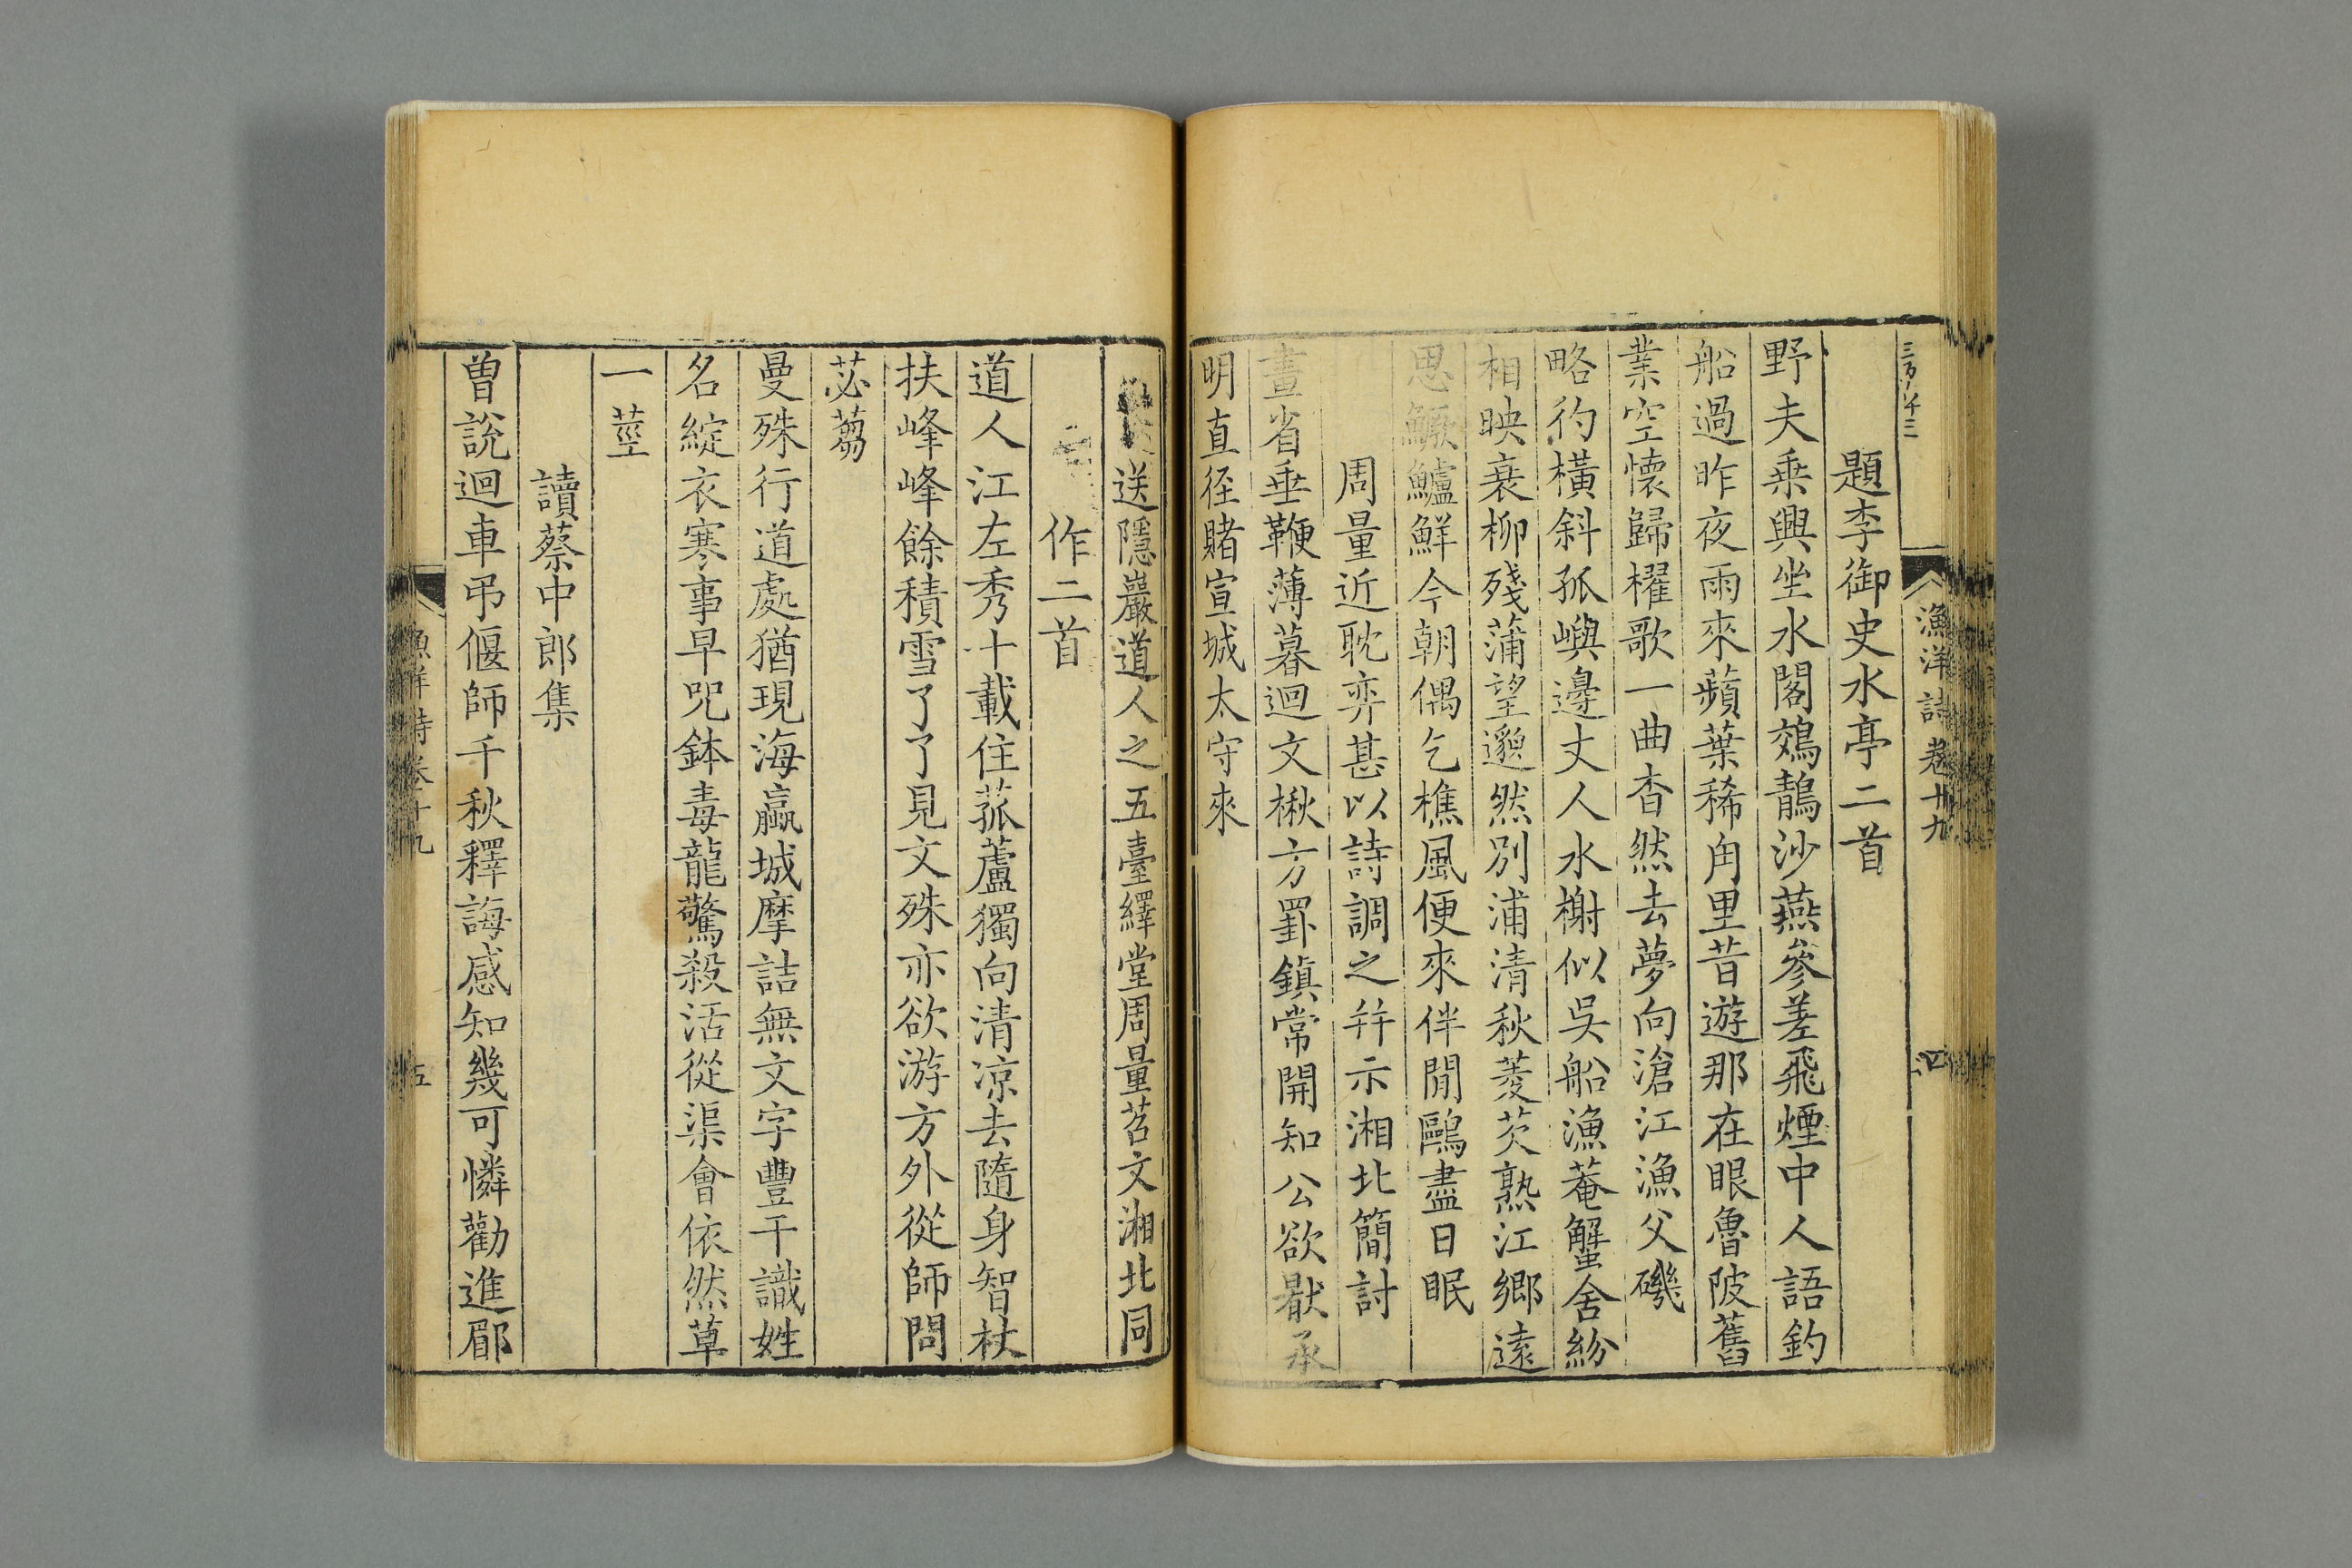 漁洋詩卷十九
四
題李御史水亭二首
野夫乘興坐水閣鵁鶄沙燕參差飛煙中人語釣
船過昨夜雨來蘋葉稀甪里昔遊那在眼魯陂舊
業空懷歸櫂歌一曲杳然去夢向滄江漁父磯
略彴橫斜孤嶼邊丈人水榭似吳船漁菴蟹舍紛
相映衰柳殘蒲望邈然別浦清秋菱芡熟江鄉遠
思鱖鱸鮮今朝偶乞樵風便來伴閒鷗盡日眠
周量近耽弈甚以詩調之幷示湘北簡討
畫省垂鞭薄暮迴文楸方罫鎮常開知公欲厭承
明直徑賭宣城太守來
送隱巖道人之五臺繹堂周量苕文湘北同
作二首
道人江左秀十載住菰蘆獨向清凉去隨身智杖
扶峰峰餘積雪了了見文殊亦欲游方外從師問
苾蒭
曼殊行道處猶現海嬴城摩詰無文字豐干識姓
名綻衣寒事早咒鉢毒龍驚殺活從渠會依然草
一莖
讀蔡中郎集
曾說迴車弔偃師千秋釋誨感知幾可憐勸進郿
漁洋詩卷十九
五